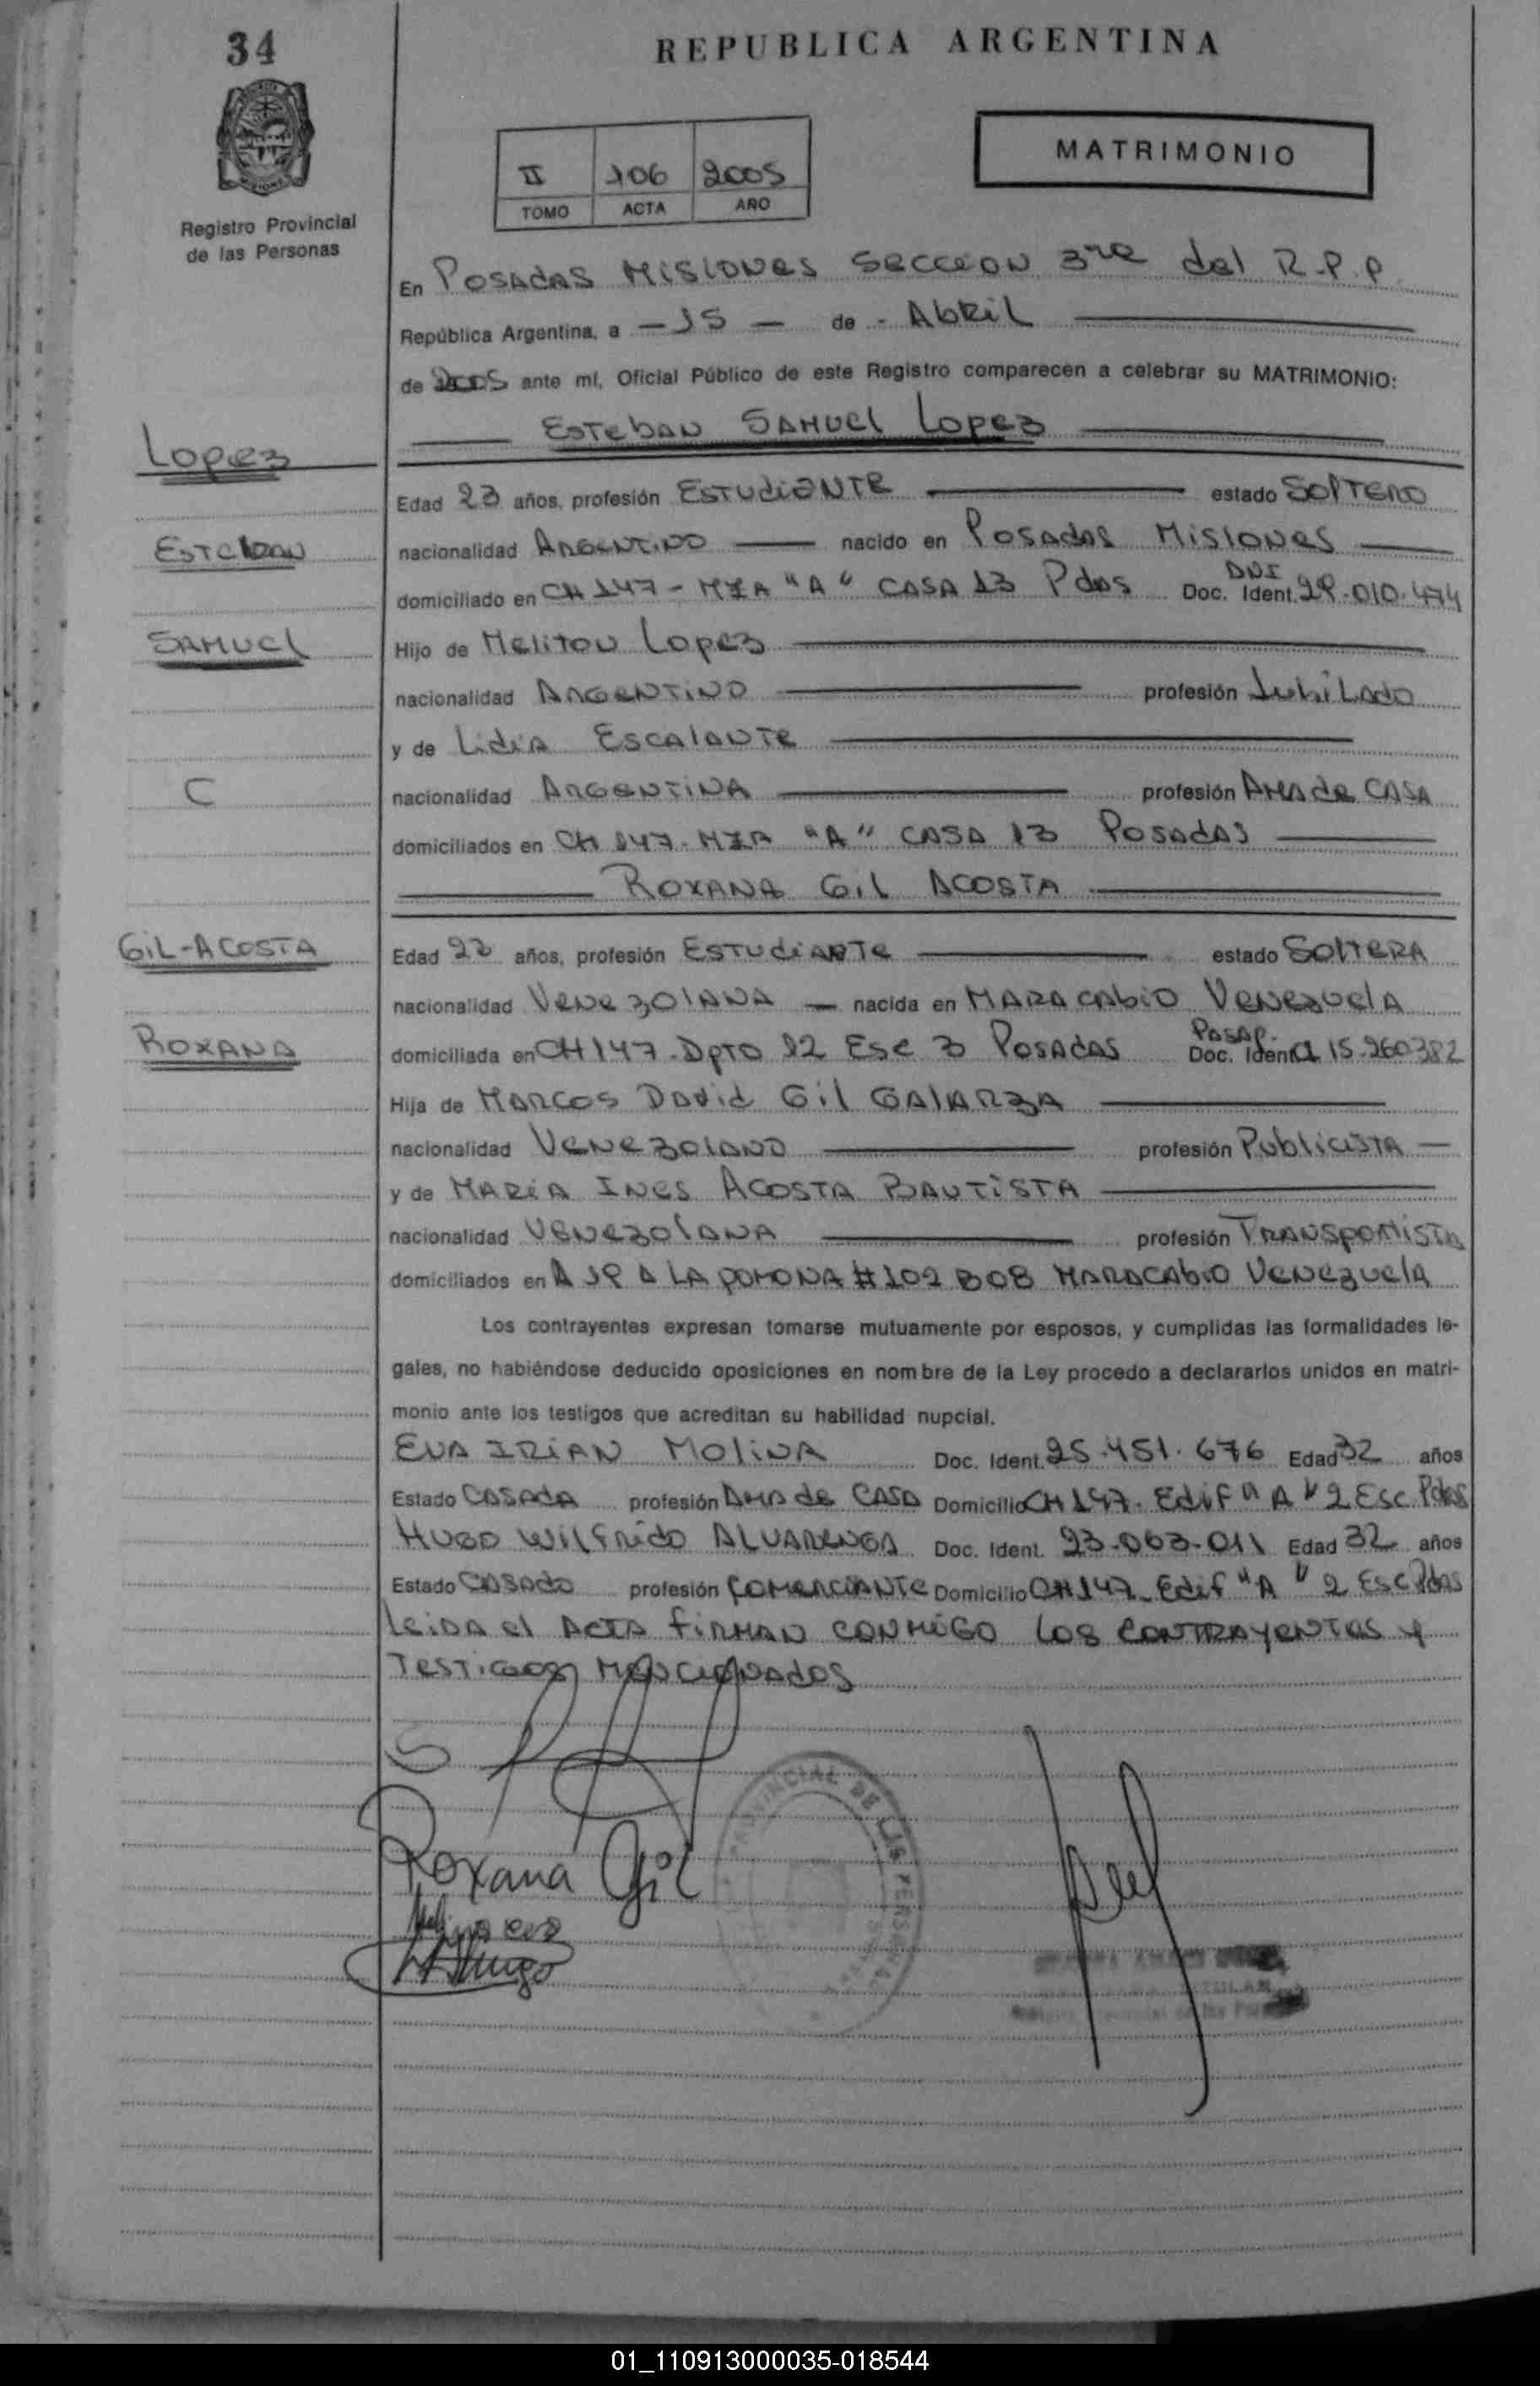 34
REPUBLICA ARGENTINA
Registro Provincial
de las Personas
II 106 2005
TOMO ACTA AÑO
MATRIMONIO
En Posadas Misiones Seccion 3ra del R.P.P.
República Argentina, a - 15 - de - Abril
de 2005 ante mí, Oficial Público de este Registro comparecen a celebrar su MATRIMONIO:
Esteban Samuel Lopez
Lopez
Edad 23 años, profesión Estudiante estado Soltero
Esteban
nacionalidad Argentino nacido en Posadas Misiones
DNI
domiciliado en CH 147 - MZA "A" CASA 13 Pdas Doc. Ident. 29.010.474
Samuel
Hijo de Meliton Lopez
nacionalidad Argentino profesión Jubilado
y de Lidia Escalante
C
nacionalidad Argentina profesión Ama de Casa
domiciliados en CH 147 - MZA "A" CASA 13 Posadas
Roxana Gil Acosta
Gil-Acosta
Edad 22 años, profesión Estudiante estado Soltera
nacionalidad Venezolana - nacida en Maracabio Venezuela
Roxana
Pasap.
domiciliada en CH 147 - Dpto 12 Esc 3 Posadas Doc. Ident. 15.260382
Hija de Marcos David Gil Galarza
nacionalidad Venezolano profesión Publicista -
y de Maria Ines Acosta Bautista
nacionalidad Venezolana profesión Transportista
domiciliados en A 19 A LA POMONA #102 B08 Maracabio Venezuela
Los contrayentes expresan tomarse mutuamente por esposos, y cumplidas las formalidades le-
gales, no habiéndose deducido oposiciones en nombre de la Ley procedo a declararlos unidos en matri-
monio ante los testigos que acreditan su habilidad nupcial.
Eva Irian Molina Doc. Ident. 25.451.676 Edad 32 años
Estado Casada profesión Ama de Casa Domicilio CH 147. Edif "A" 2 Esc Pdas
Hugo Wilfrido Alvarenga Doc. Ident. 23.063.011 Edad 32 años
Estado Casado profesión Comerciante Domicilio CH 147 Edif "A" 2 Esc Pdas
Leida el Acta firman conmigo los contrayentes y
Testigos Mencionados
PROVINCIAL DE LAS PERSONAS
Roxana Gil
01_110913000035-018544